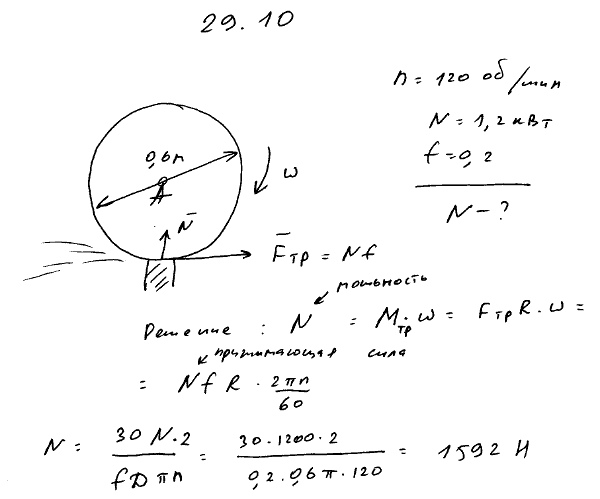 29.10
n = 120 об/мин
N = 1,2 кВт
f = 0,2
N - ?
0,6 м
ω
N̄
F̄тр = Nf
мощность
Решение : N = Mтр·ω = FтрR·ω =
прижимающая сила
= NfR · 2πn/60
N = 30N·2/fDπn = 30·1200·2/0,2·0,6π·120 = 1592 Н